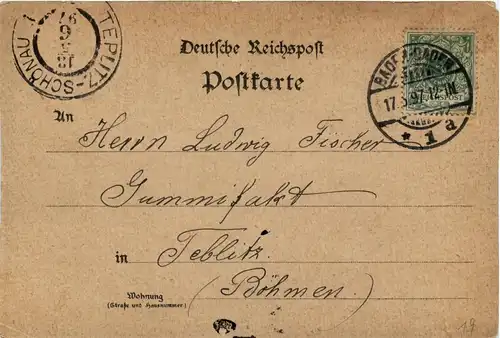 TEPLITZ-SCHÖNAU 1
18
6
97
Deutsche Reichspost
Postkarte
BADEN-BADEN
17.6.97.12-1N.
* 1 a
An
Herrn Ludwig Fischer
Gummifakt
in Teblitz.
(Böhmen.)
Wohnung
(Straße und Hausnummer)